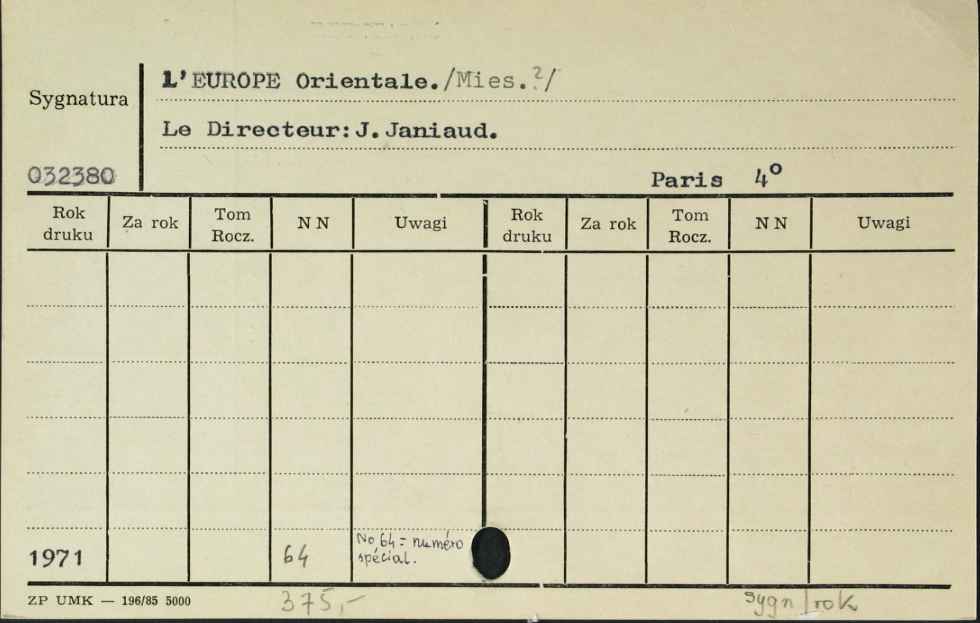 L'EUROPE Orientale./Mies.?/
Sygnatura
Le Directeur: J. Janiaud.
032380
Paris 4°
Rok druku Za rok Tom Rocz. N N Uwagi Rok druku Za rok Tom Rocz. N N Uwagi
1971 64 No 64 = numéro spécial.
ZP UMK — 196/85 5000 375,- sygn/rok